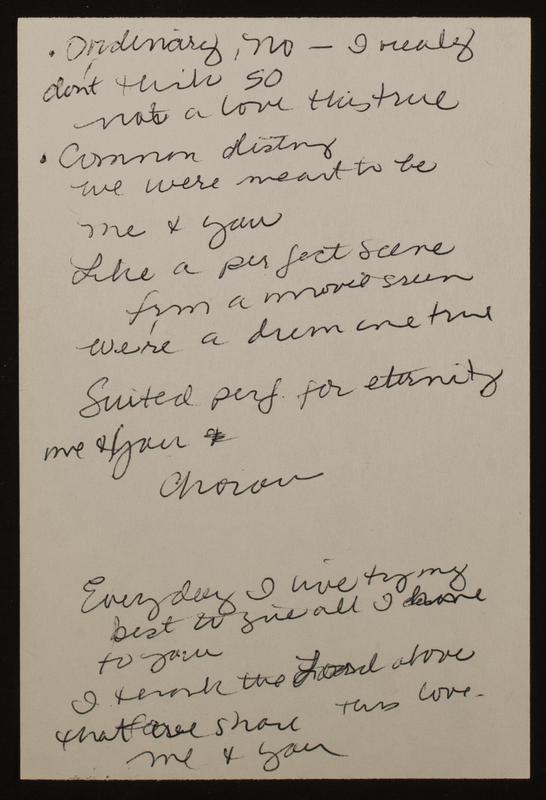 • Ordinary, no — I realy
dont think so
not a love this true
• Common distny
we were meant to be
me & you
Like a perfect scene
from a movie sreen
we're a drem come true
Suited perf. for eternity
me & you &
Chorou
Everyday I live try my
best to give all I have
to you
I thank the Lord above
that we share this love.
me & you